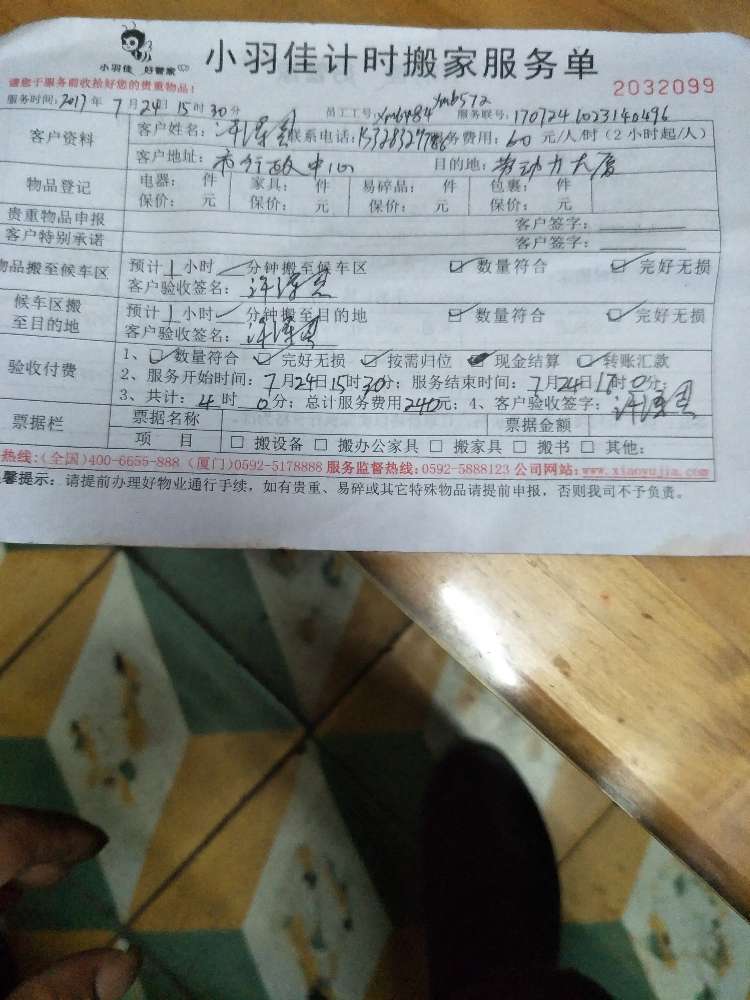 小羽佳 好管家
小羽佳计时搬家服务单
请您于服务前收拾好您的贵重物品！
2032099
服务时间：2017年7月24日15时30分 员工工号： 服务联号：17072416023140496
客户资料
客户姓名： 联系电话： 服务费用：60元/人/时（2小时起/人）
客户地址：市行政中心 目的地：劳动力大厦
物品登记
电器： 件 家具： 件 易碎品： 件 包裹： 件
保价： 元 保价： 元 保价： 元 保价： 元
贵重物品申报 客户签字：
客户特别承诺 客户签字：
物品搬至候车区
预计1小时 分钟搬至候车区 ☑数量符合 ☑完好无损
客户验收签名：
候车区搬至目的地
预计1小时 分钟搬至目的地 ☑数量符合 ☑完好无损
客户验收签名：
验收付费
1、☑数量符合 ☑完好无损 ☑按需归位 ☑现金结算 ☑转账汇款
2、服务开始时间：7月24日15时30分；服务结束时间：7月24日 时0分；
3、共计：4时0分；总计服务费用240元；4、客户验收签字：
票据栏
票据名称 票据金额
项 目 □搬设备 □搬办公家具 □搬家具 □搬书 □其他：
热线：(全国)400-6655-888 (厦门)0592-5178888 服务监督热线：0592-5888123 公司网站：www.xiaoyujia.com
馨提示：请提前办理好物业通行手续，如有贵重、易碎或其它特殊物品请提前申报，否则我司不予负责。